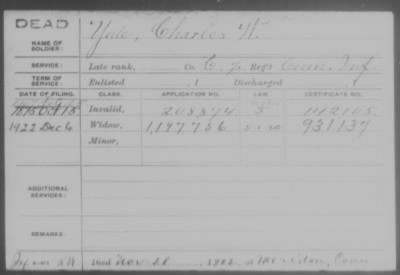 DEAD
NAME OF SOLDIER: Yale, Charles W.
SERVICE: Late rank, Co. G, 7 Reg't Conn. Inf.
TERM OF SERVICE: Enlisted , 1 Discharged
DATE OF FILING. CLASS. APPLICATION NO. LAW. CERTIFICATE NO.
1875 Oct 13 Invalid, 208874 142105.
1922 Dec 6 Widow, 1,197756 931137
Minor,
ADDITIONAL SERVICES:
REMARKS:
died Nov 1922, at Meriden, Conn